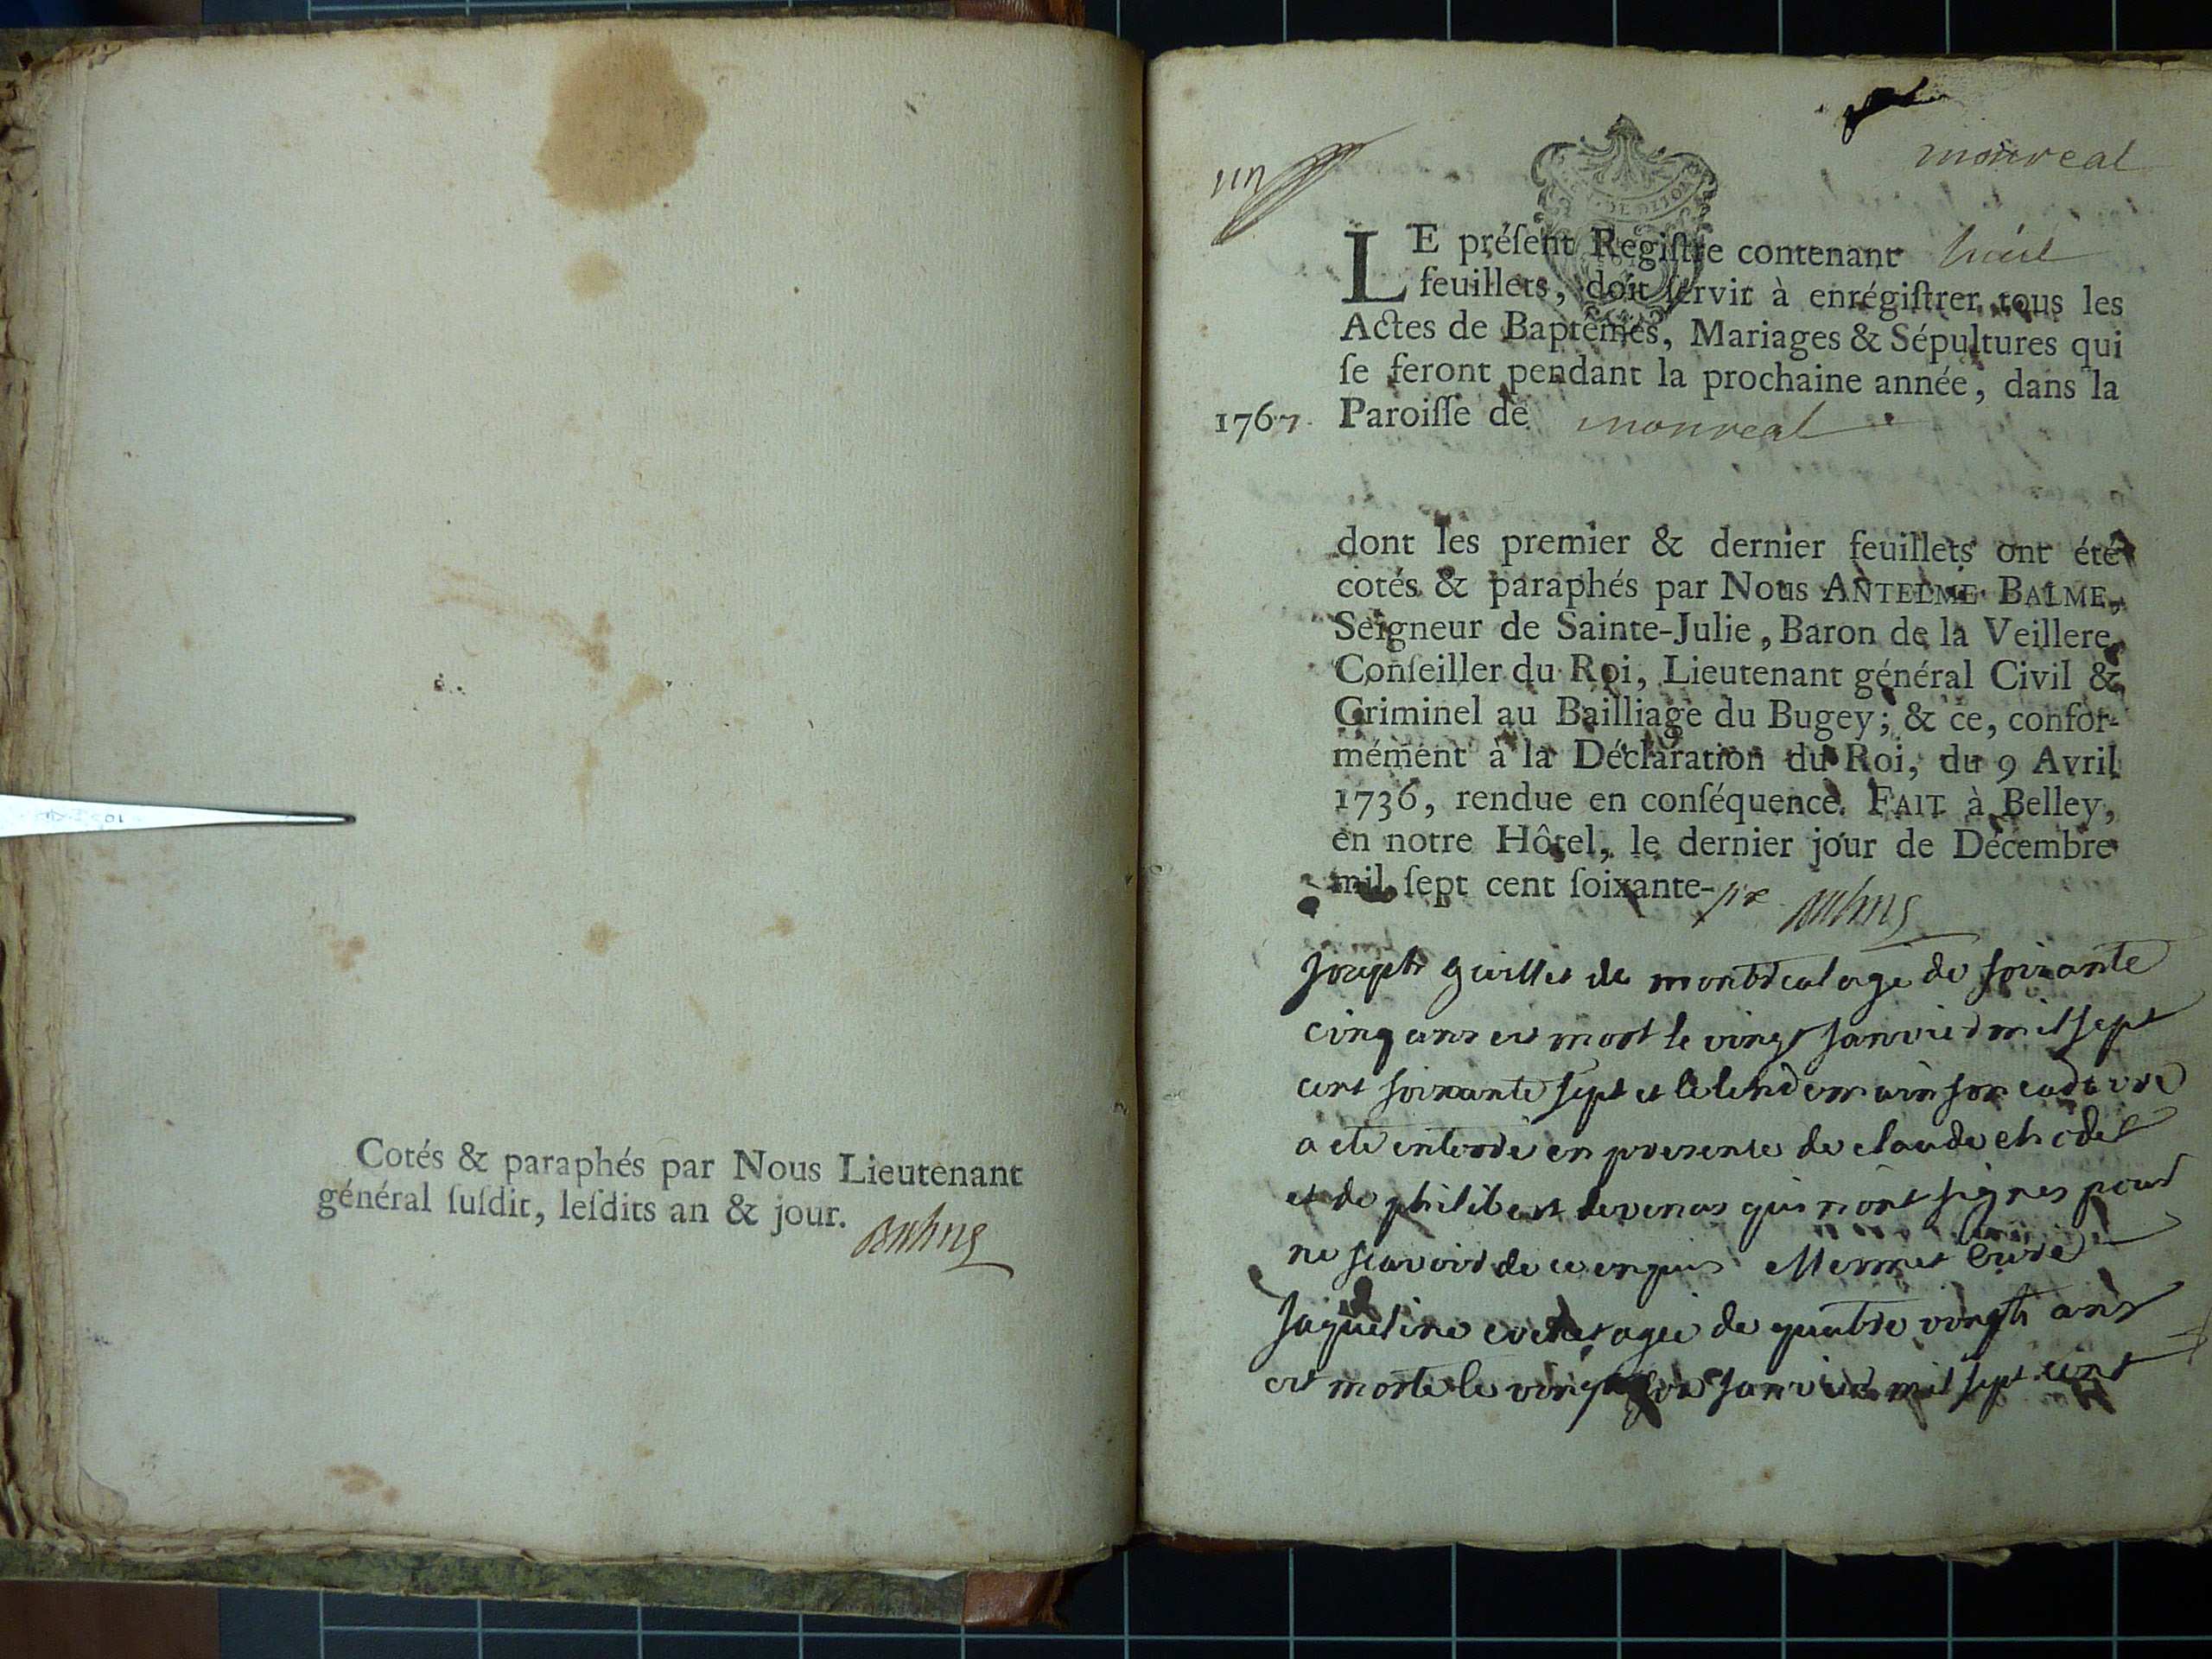 Cotés & paraphés par Nous Lieutenant
général ſuſdit, leſdits an & jour.
un
monreal
LE préſent Regiſtre contenant huit
feuillets, doit ſervir à enrégiſtrer tous les
Actes de Baptêmes, Mariages & Sépultures qui
ſe feront pendant la prochaine année, dans la
1767. Paroiſſe de monreal
dont les premier & dernier feuillets ont été
cotés & paraphés par Nous ANTELME BALME,
Seigneur de Sainte-Julie, Baron de la Veillere,
Conſeiller du Roi, Lieutenant général Civil &
Criminel au Bailliage du Bugey; & ce, confor-
mément à la Déclaration du Roi, du 9 Avril
1736, rendue en conſéquence. FAIT à Belley,
en notre Hôtel, le dernier jour de Décembre
mil ſept cent ſoixante-six
joseph guillet de montreal agé de soixante
cinq ans est mort le vingt janvier mil sept
cent soixante sept et le lendemain son cadavre
a eté enterré en presence de claude
et de philibert devenas qui n'ont signes pour
ne scavoir de ce enquis Mermet Curé
Jaqueline agée de quatre vingts ans
est morte le vingt janvier mil sept cent